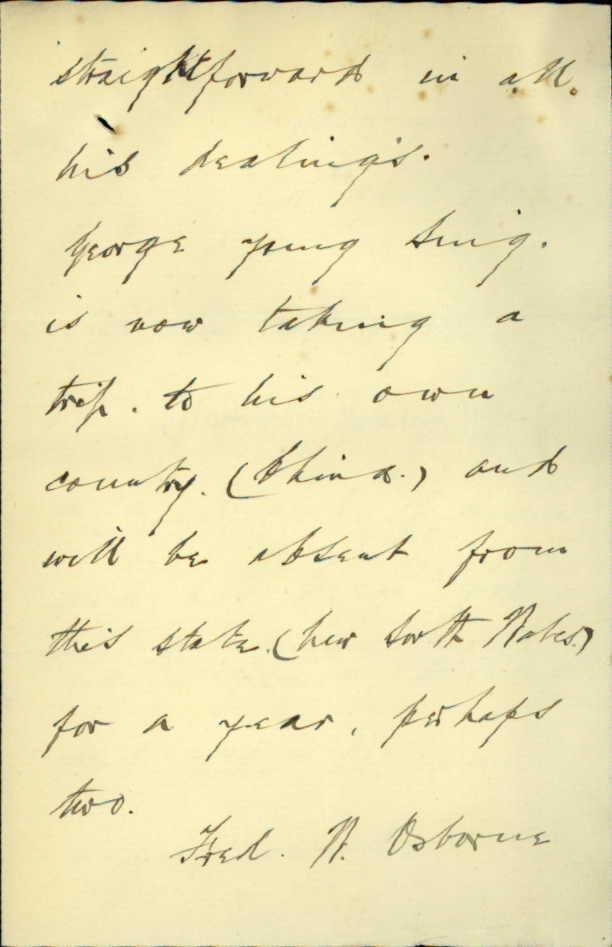 straightforward in all
his dealings.
George Young Sing.
is now taking a
trip. to his own
country. (China.) and
will be absent from
this state. (New South Wales.)
for a year, perhaps
two.
Fred. W. Osborne